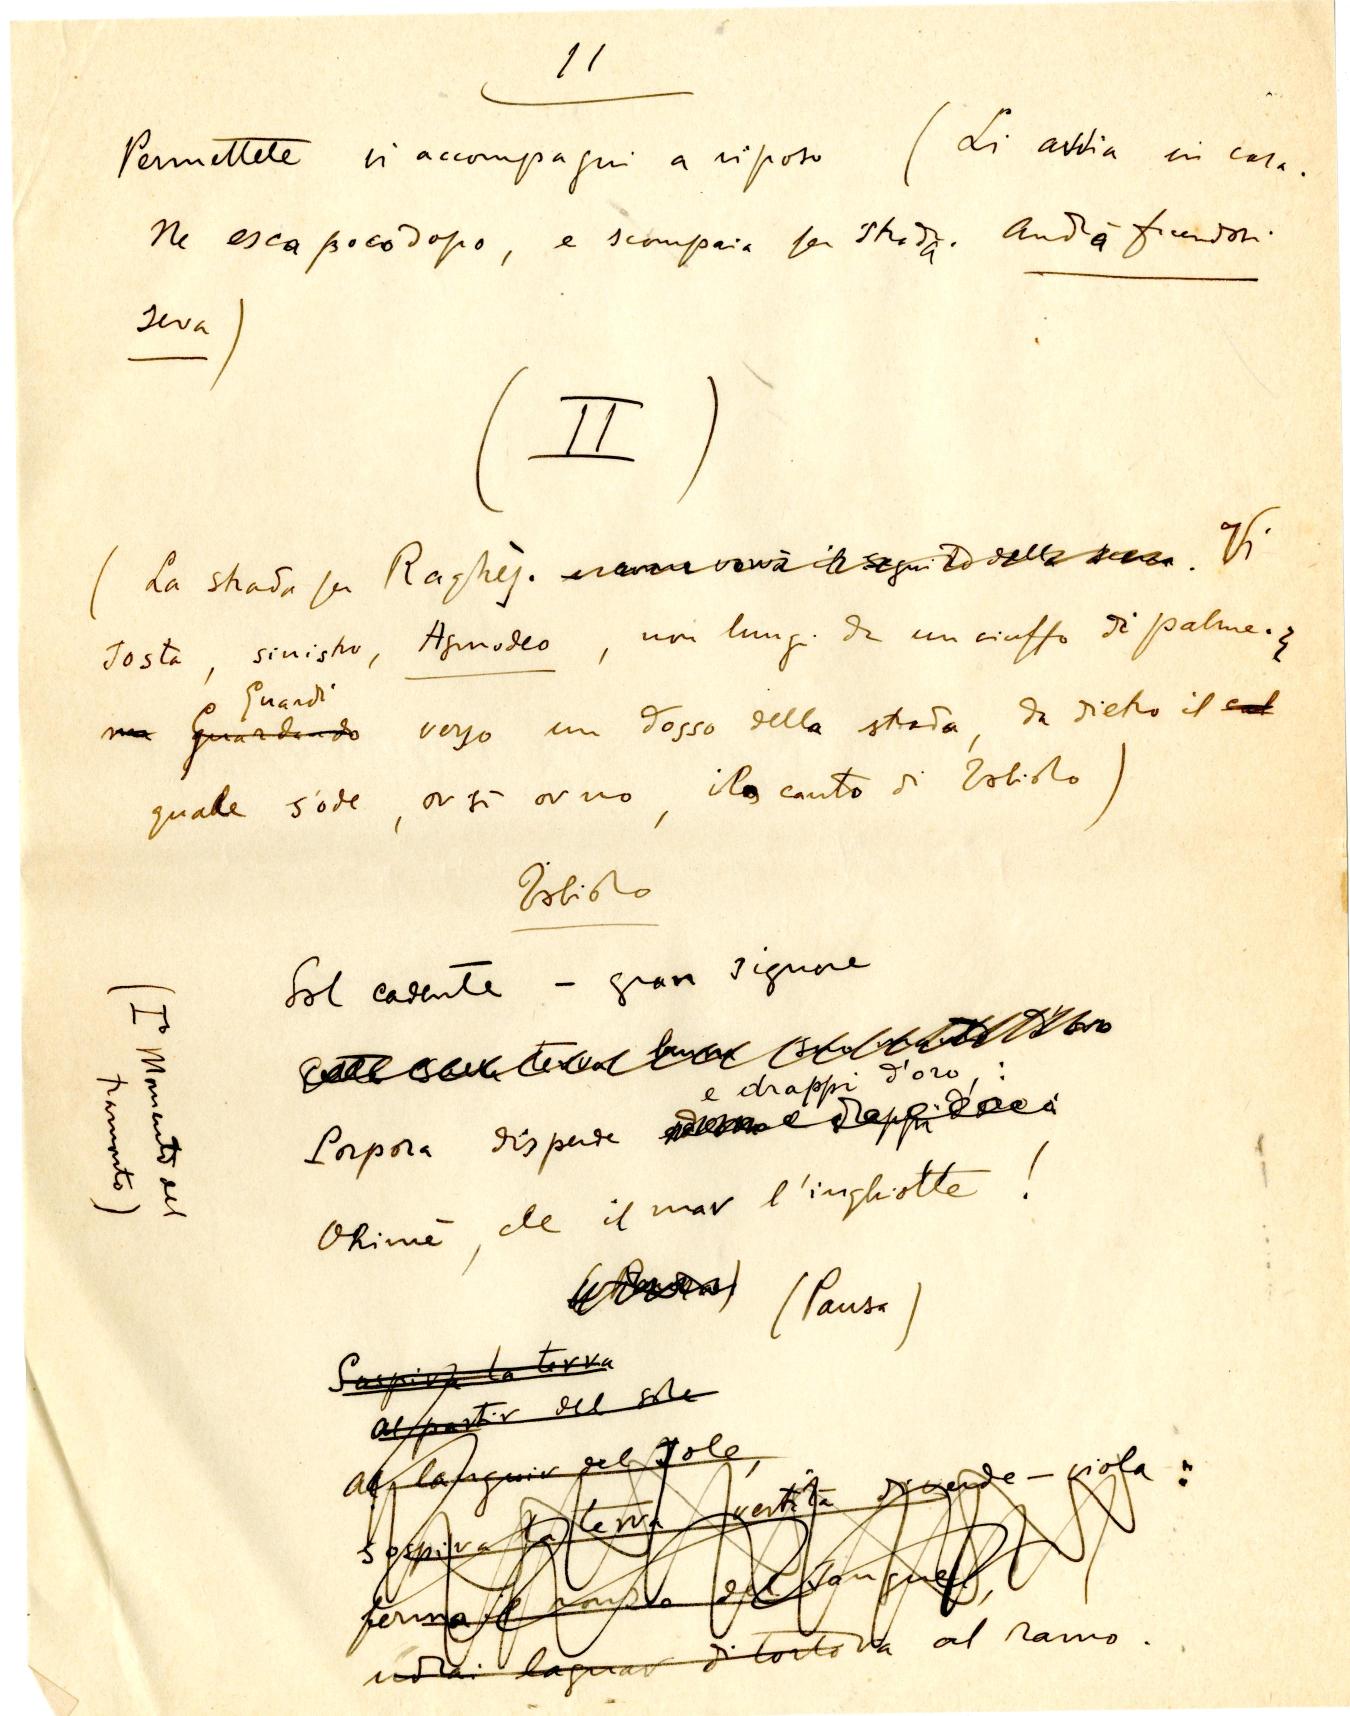 11
Permettete vi accompagni a riposo (Li avvia in casa.
Ne esca poco dopo, e scompaia per strada. Andrà facendosi
sera)
(II)
(La strada per Raghès. verrà il seguito della scena. Vi
sosta, sinistro, Asmodeo, non lungi da un ciuffo di palme.
Guardi
ma guardando verso un dosso della strada, da dietro il col
quale s'ode, or sì or no, il canto di Tobiolo)
Tobiolo
Sol cadente – gran signore
e drappi d'oro,:
Porpora disperde e drappi
Ohimè, che il mar l'inghiotte!
(Pausa) (Pausa)
Sospira la terra
al partir del sole
al languir del sole,
sospira la terra vestita di verde – viola:
ferma il del sangue,
udrai lagnar di tortora al ramo.
(I° Momento del
tramonto)